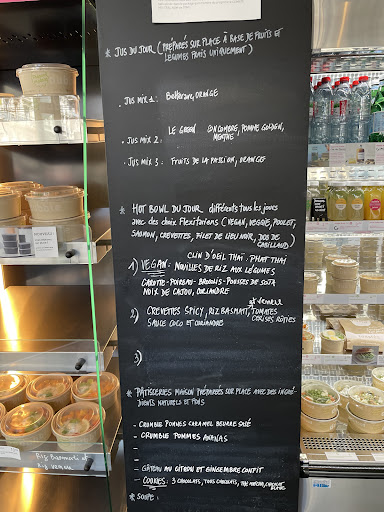 * JUS DU JOUR (PRÉPARÉS SUR PLACE À BASE DE FRUITS ET
LÉGUMES FRAIS UNIQUEMENT)
. JUS MIX 1 : Betterave, ORANGE
. JUS MIX 2 : LE GREEN CONCOMBRE, POMME GOLDEN,
MENTHE
. JUS MIX 3 : FRUITS DE LA PASSION, ORANGES
* HOT BOWL DU JOUR différents tous les jours
avec des choix Flexitariens (VEGAN, VEGGIE, POULET,
SAUMON, CREVETTES, FILET DE LIEU NOIR, DOS DE
CABILLAUD)
CLIN D'OEIL THAI : PHAT THAI
1) VEGAN : NOUILLES DE RIZ AUX LÉGUMES
CAROTTE - POIREAU - BROCOLIS - POUSSES DE SOJA
NOIX DE CAJOU, CORIANDRE
2) CREVETTES SPICY, RIZ BASMATI, TOMATES
CERISES RÔTIES
SAUCE COCO ET CORIANDRE
3)
* PÂTISSERIES MAISON PRÉPARÉES SUR PLACE AVEC DES INGRÉ-
DIENTS NATURELS ET FRAIS
- CRUMBLE POMMES CARAMEL BEURRE SALÉ
- CRUMBLE POMMES ANANAS
-
-
- GÂTEAU AU CITRON ET GINGEMBRE CONFIT
- COOKIES : 3 CHOCOLATS, TOUS CHOCOLATS, THÉ MATCHA, CHOCOLAT
BLANC
* SOUPE :
Riz Basmati et
Riz